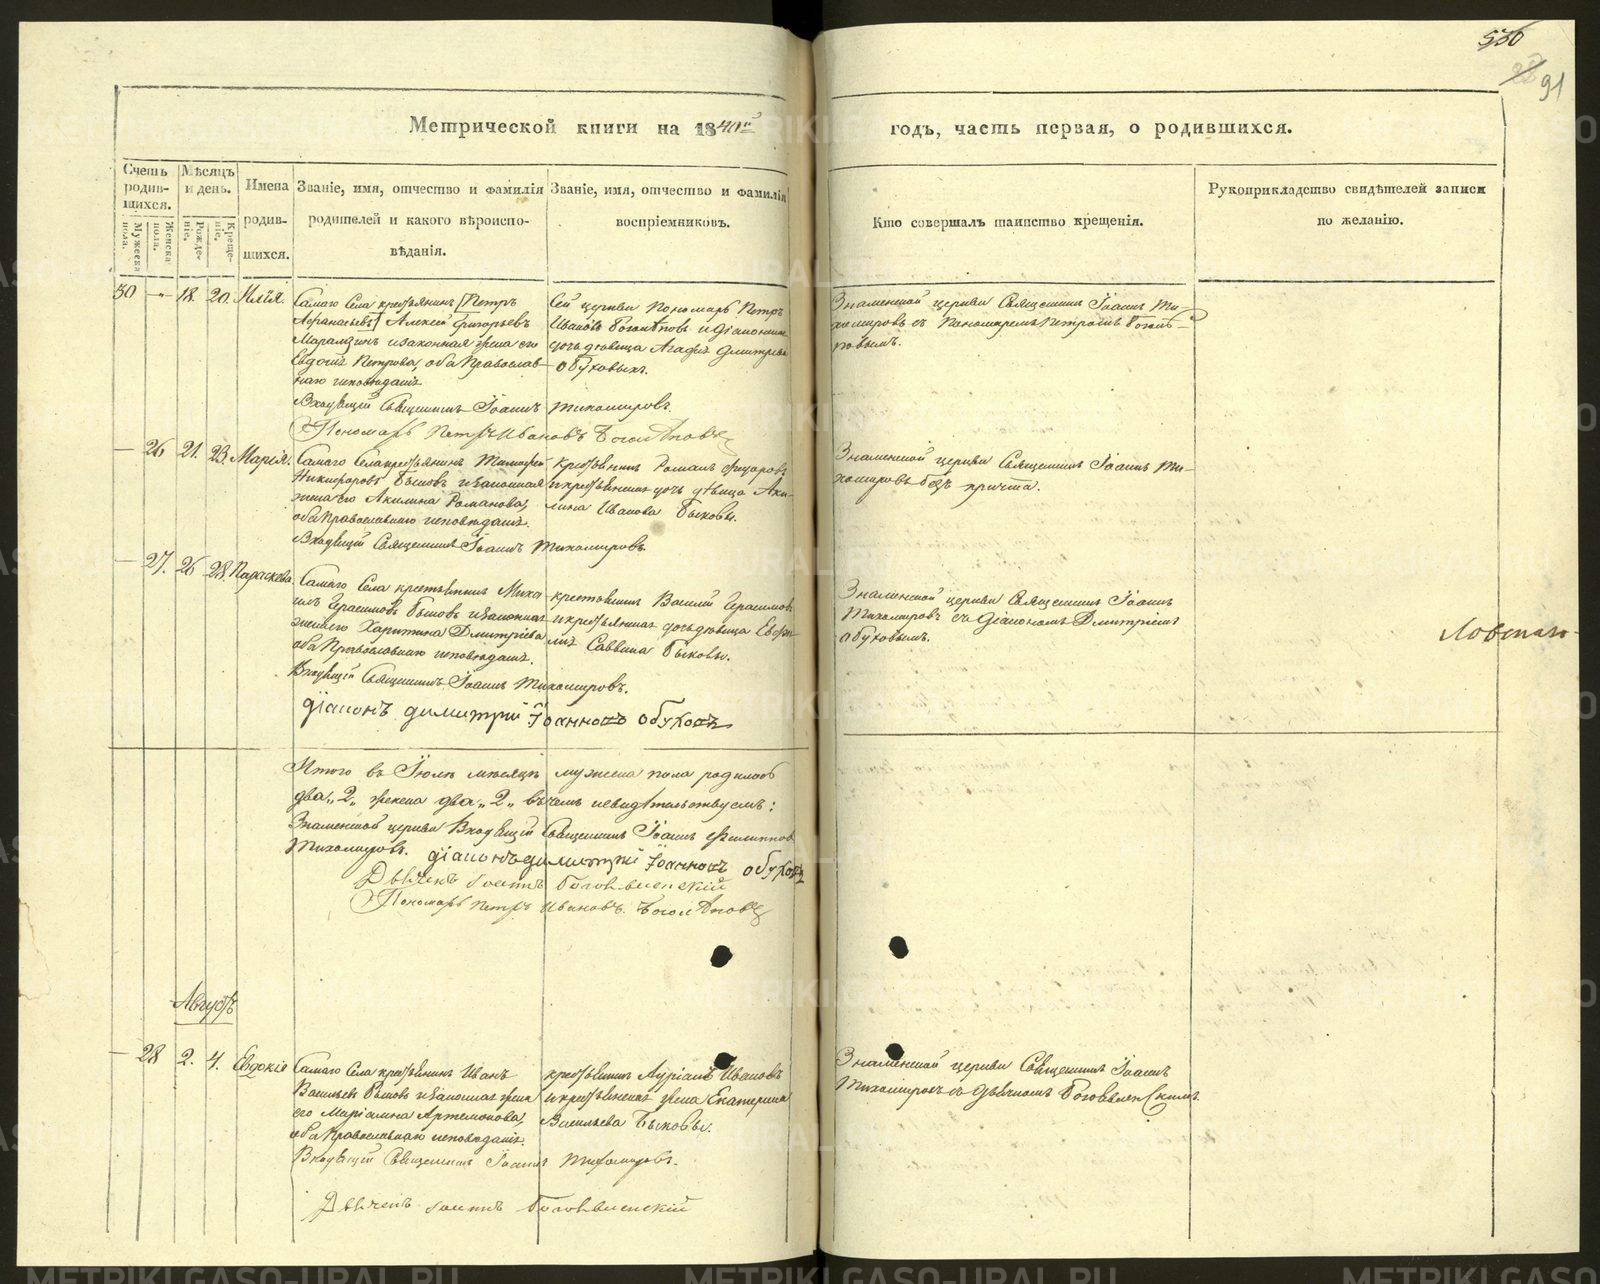 550
28 91
Метрической книги на 1840й годъ, часть первая, о родившихся.
Счетъ родившихся.
Мужеска пола.
Женска пола.
Мѣсяцъ и день.
Рожденіе.
Крещеніе.
Имена родившихся.
Званіе, имя, отчество и фамилія родителей и какого вѣроисповѣданія.
Званіе, имя, отчество и фамилія воспріемниковъ.
Кто совершалъ таинство крещенія.
Рукоприкладство свидѣтелей записи по желанію.
30 — 18. 20. Илія.
Самаго Села крестьянинъ [Петръ
Афанасьевъ] Алексѣй Григорьевъ
и законная жена его
Евдокія Петрова, оба Православ-
наго исповѣданія
Сей церкви Пономарь Петръ
Ивановъ Боголѣповъ и діаконская
дочь дѣвица Агафія Дмитріева
Обуховыхъ.
Знаменской церкви Священникъ Іоаннъ Ти-
хомировъ съ Пономаремъ Петромъ
Входящій Священникъ Іоаннъ Тихомировъ.
Пономарь Петръ Ивановъ Боголѣповъ
— 26 21. 23. Марія.
Самаго Села крестьянинъ Тимофей
Никифоровъ Быковъ и законная
жена его Акилина Романова,
оба Православнаго исповѣданія.
крестьянинъ Романъ Ѳедоровъ
и крестьянская дочь дѣвица Аки-
лина Иванова Быковы.
Знаменской церкви Священникъ Іоаннъ Ти-
хомировъ безъ причта.
Входящій Священникъ Іоаннъ Тихомировъ
— 27. 26 28. Параскева
Самаго Села крестьянинъ Миха-
илъ Герасимовъ Быковъ и законная
жена его Харитина Дмитріева
оба Православнаго исповѣданія.
крестьянинъ Василій Герасимовъ
и крестьянская дочь дѣвица Евфи-
мія Саввина Быковы.
Знаменской церкви Священникъ Іоаннъ
Тихомировъ съ Діакономъ Дмитріемъ
Обуховымъ.
Входящій Священникъ Іоаннъ Тихомировъ.
діаконъ димитрій Іоанновъ обуховъ
Итого въ Іюлѣ мѣсяцѣ мужеска пола родилось
два „2„ женска два „2„ въ чемъ и свидѣтельствуемъ:
Знаменской церкви Входящій Священникъ Іоаннъ Филипповъ
Тихомировъ. діаконъ димитрій Іоанновъ обуховъ
Дьячекъ Богоявленскій
Пономарь Петръ Ивановъ. Боголѣповъ
Августъ
— 28 2. 4. Евдокія
Самаго Села крестьянинъ Иванъ
Васильевъ Быковъ и законная жена
его Маріамна Артемонова,
оба Православнаго исповѣданія.
крестьянинъ Ивановъ
и крестьянская жена Екатерина
Васильева Быковы.
Знаменской церкви Священникъ Іоаннъ
Тихомировъ съ Дьячкомъ Богоявленскимъ
Входящій Священникъ Іоаннъ Тихомировъ.
Дьячекъ Богоявленскій
METRIKI.GASO-URAL.RU